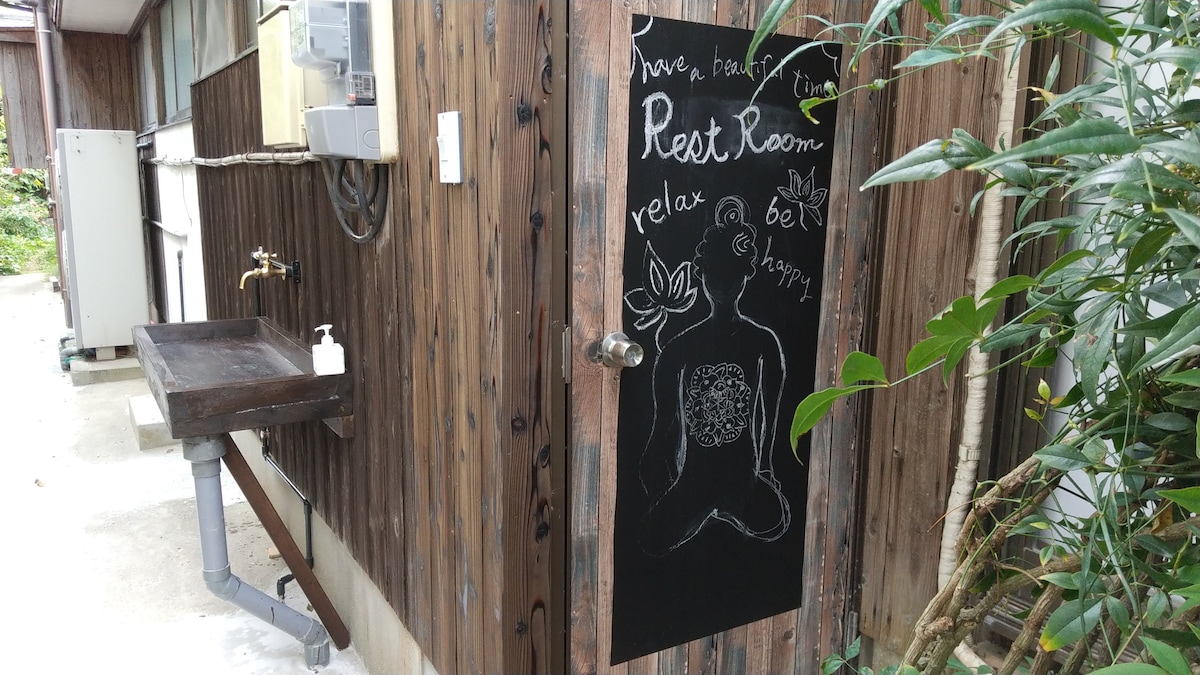 have a beautiful time
Rest Room
relax
be
happy